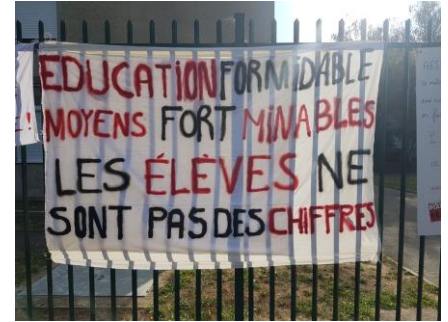 EDUCATION FORMIDABLE
MOYENS FORT MINABLES
LES ÉLÈVES NE
SONT PAS DES CHIFFRES
!